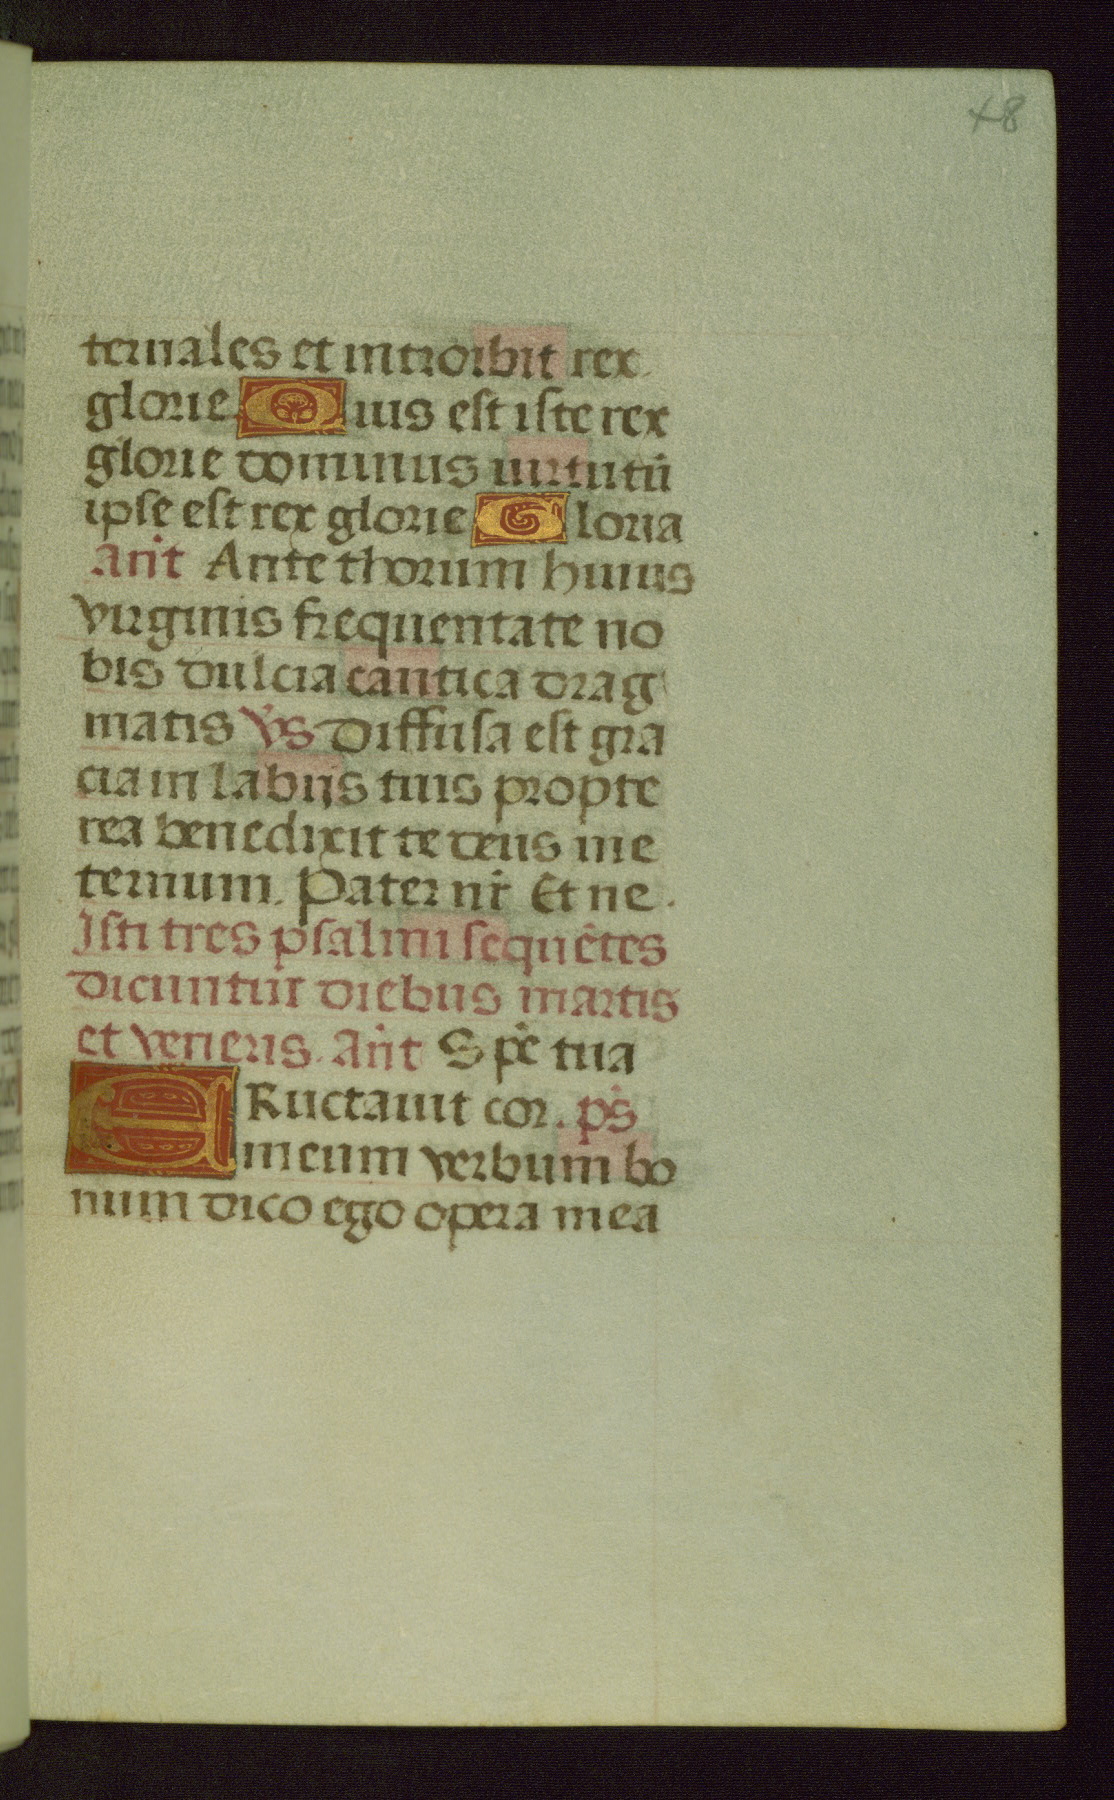 48
ternales et introibit rex
glorie Quis est iste rex
glorie dominus uirtutū
ipse est rex glorie Gloria
Añt Ante thorum huius
virginis frequentate no
bis dulcia cantica drag
matis Vs Diffusa est gra
cia in labijs tuis propte
rea benedixit te deus in e
ternum. Pater nr̄ Et ne.
Isti tres psalmi sequētes
dicuntur diebus martis
et veneris. Añt Spē tua
ERuctauit cor. ps
meum verbum bo
num dico ego opera mea